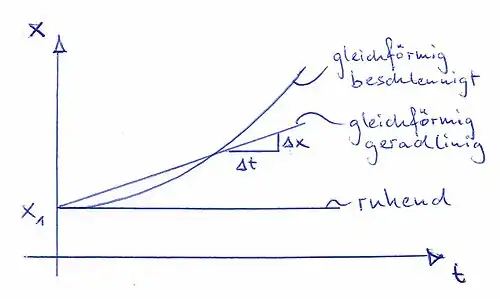 x
gleichförmig
beschleunigt
gleichförmig
geradlinig
Δx
Δt
x₁
ruhend
t